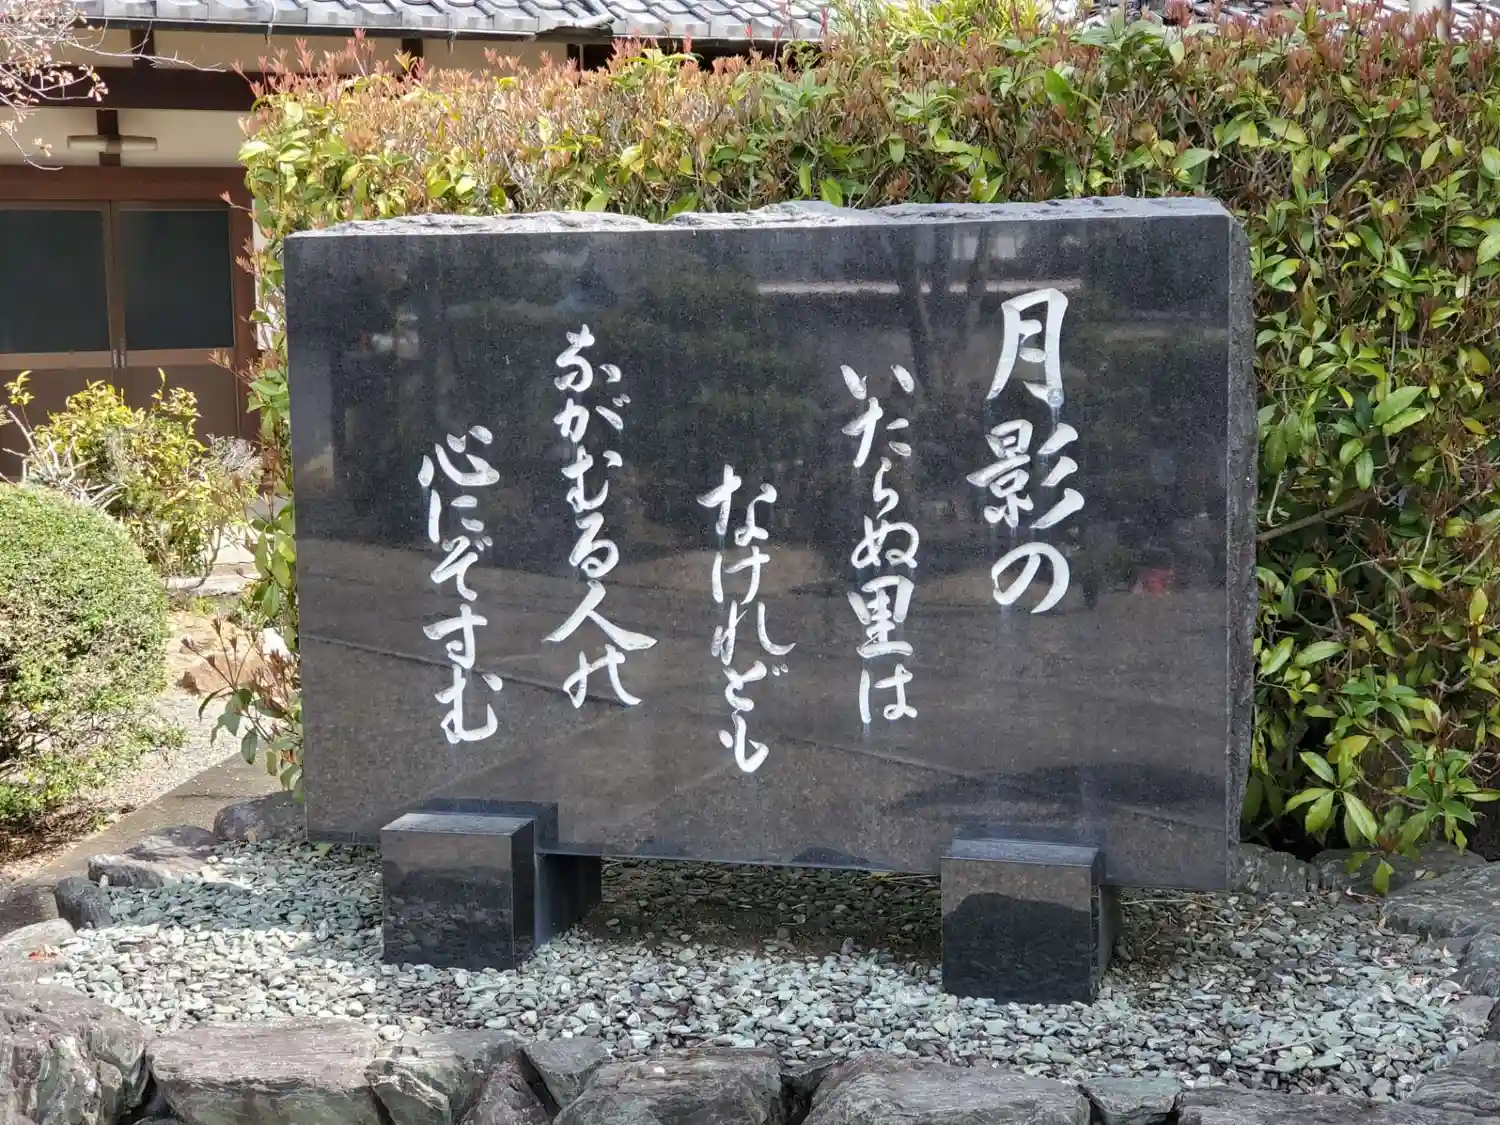 月影の
いたらぬ里は
なけれども
ながむる人の
心にぞすむ